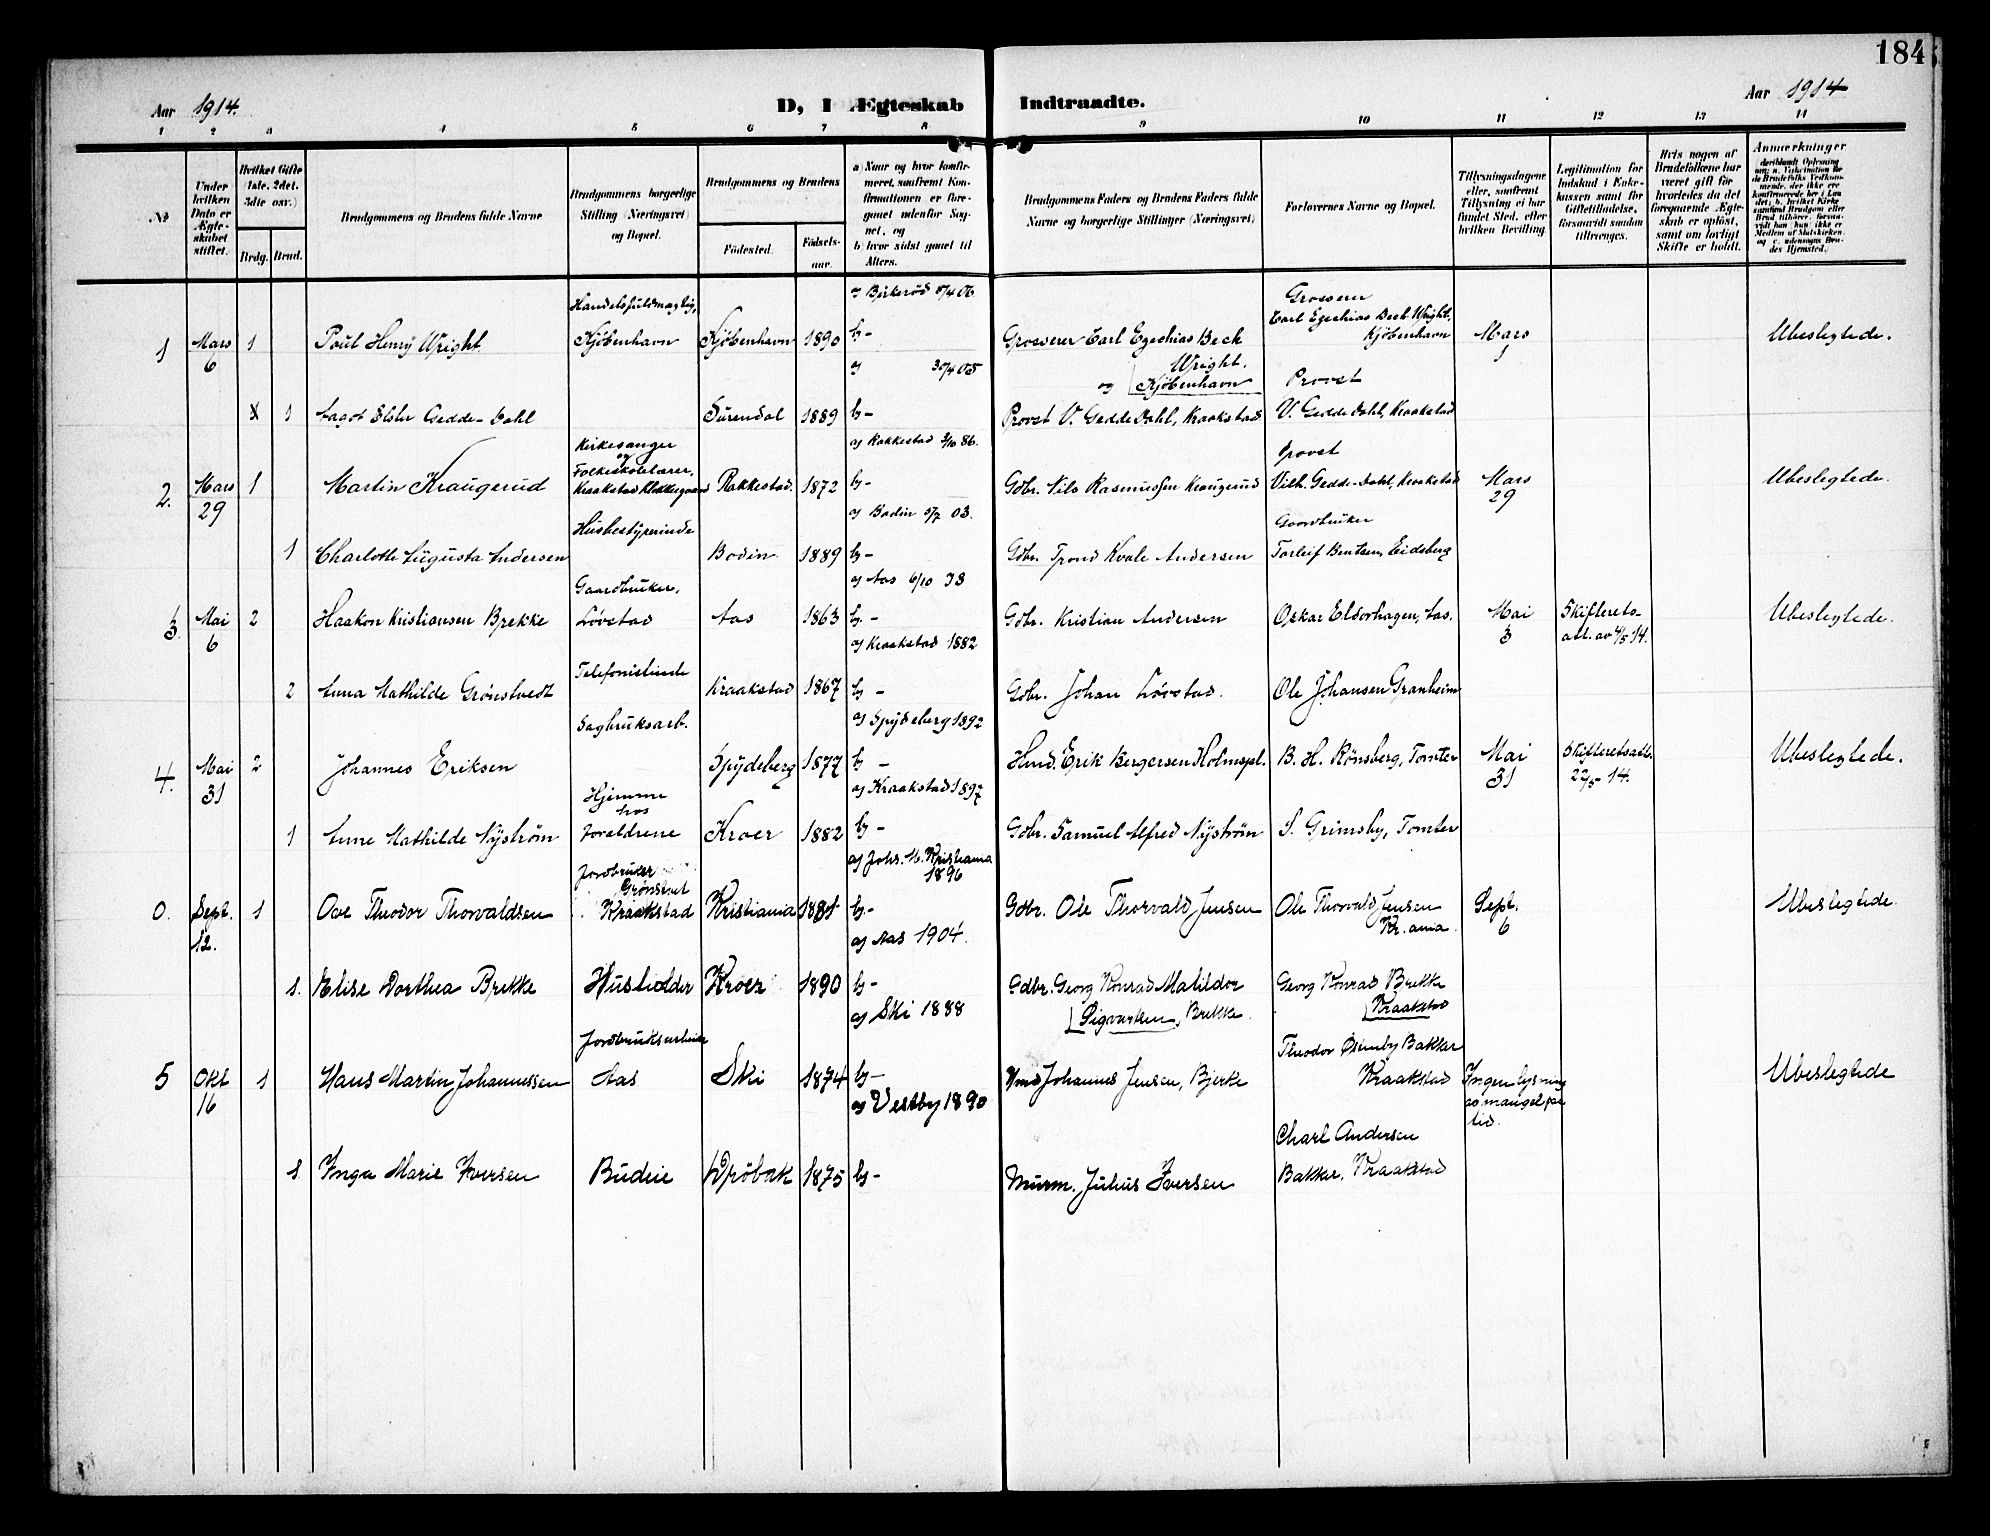 184
Aar 1914. D, I Ægteskab Indtraadte. Aar 1914
1 2 3 4 5 6 7 8 9 10 11 12 13 14
№
Under hvilken Dato er Ægteskabet stiftet.
Hvilket Gifte (1ste, 2det, 3die osv.)
Brdg. Brud.
Brudgommens og Brudens fulde Navne
Brudgommens borgerlige Stilling (Næringsvei) og Bopæl.
Brudgommens og Brudens
Födested. Födselsaar.
a) Naar og hvor konfirmeret, saafremt Konfirmationen er foregaaet udenfor Sognet, og
b) hvor sidst gaaet til Alters.
Brudgommens Faders og Brudens Faders fulde Navne og borgerlige Stillinger (Næringsvei)
Forlovernes Navne og Bopæl.
Tillysningsdagene eller, saafremt Tillysning ei har fundet Sted, efter hvilken Bevilling.
Legitimation for Indskud i Enkekassen samt for Giftetilladelse, forsaavidt saadan tiltrænges.
Hvis nogen af Brudefolkene har været gift för hvorledes da det foregaaende Ægteskab er oplöst, samt om lovligt Skifte er holdt.
Anmerkninger
deriblandt Oplysning om: a. Vaksination for de Brudefolks Vedkommende, der ikke ere konfirmerede her i Landet; b. hvilket Kirkesamfund Brudgom eller Brud tilhører, forsaavidt han (hun) ikke er Medlem af Statskirken, og c. udensogns Brudes Hjemsted.
Handelsfuldmægtig, a) Birkeröd 8/4 06 Grosserer
1 Mars 6 1 Poul Henry Wright Kjöbenhavn Kjöbenhavn 1890 b- Grosserer Carl Ezechias Beck Wright. Kjöbenhavn Carl Ezechias Beck Wright, Kjöbenhavn Mars 1 Ubeslegtede.
a) 30/4 05 og Provst
1 Aagot Gedde-Dahl Surendal 1889 b- Provst V. Gedde Dahl, Kraakstad V. Gedde Dahl, Kraakstad
Kirkesanger og Folkeskolelærer, a) Rakkestad 3/10 86. Provst
2. Mars 29 1 Martin Kraugerud Kraakstad Klokkergaard Rakkestad 1872 b- Gdbr. Nils Rasmussen Kraugerud Vilh. Gedde-Dahl, Kraakstad Mars 29 Ubeslegtede.
Husbestyrerinde a) Bodin 5/7 03. Gaardbruker
1 Charlotte Augusta Andersen Bodin 1889 b- Gdbr. Trond Kvale Andersen Torleif Bentsen, Eidsberg
Gaardbruker, a) Aas 6/10 78
3. Mai 6 2 Haakon Kristiansen Brekke Lövstad Aas 1863 b.- Gdbr. Kristian Andersen Oskar Eldorhagen, Aas. Mai 3 Skifterets- att. av 4/5 14. Ubeslegtede.
a) Kraakstad 1882
2 Anna Mathilde Grönstvedt Telefonistinde Kraakstad 1867 b- Gdbr. Johan Lövstad. Ole Johansen Granheim
Sagbruksarb. a) Spydeberg 1892
4. Mai 31 2 Johannes Eriksen Spydeberg 1877 b- Husmd. Erik Bergersen Holmspl. B. H. Rönsberg, Tomter Mai 31 Skifteretsatt. 22/5 14. Ubeslegtede.
Hjemme hos a) Kraakstad 1897
1 Anne Mathilde Nyström foreldrene Kroer 1882 b- Gdbr. Samuel Alfred Nyström S. Grimsby, Tomter
Jordbruker Grönstvet a) Johs. M. Kristiania 1896
0. Sept. 12. 1 Ove Theodor Thorvaldsen Kraakstad Kristiania 1881 b.- Gdbr. Ole Thorvald Jensen Ole Thorvald Jensen Kr.ania Sept. 6 Ubeslegtede.
a) Aas 1904.
1. Elise Dorthea Brekke Husholder Kroer 1890 b- Gdbr. Georg Konrad Matildor Sigvartsen, Brekke Georg Konrad Brekke Kraakstad
Jordbruksarbeider a) Ski 1888 Theodor Österby Bakker
5 Okt 16 1 Hans Martin Johannessen Aas Ski 1874 b- Johannes Jensen, Bjerke Kraakstad Ingen lysning av mangel paa tid. Ubeslegtede
a) Vestby 1890 Charl Andersen
1. Inga Marie Iversen Budeie Dröbak 1875 b- Murm. Julius Iversen Bakker, Kraakstad